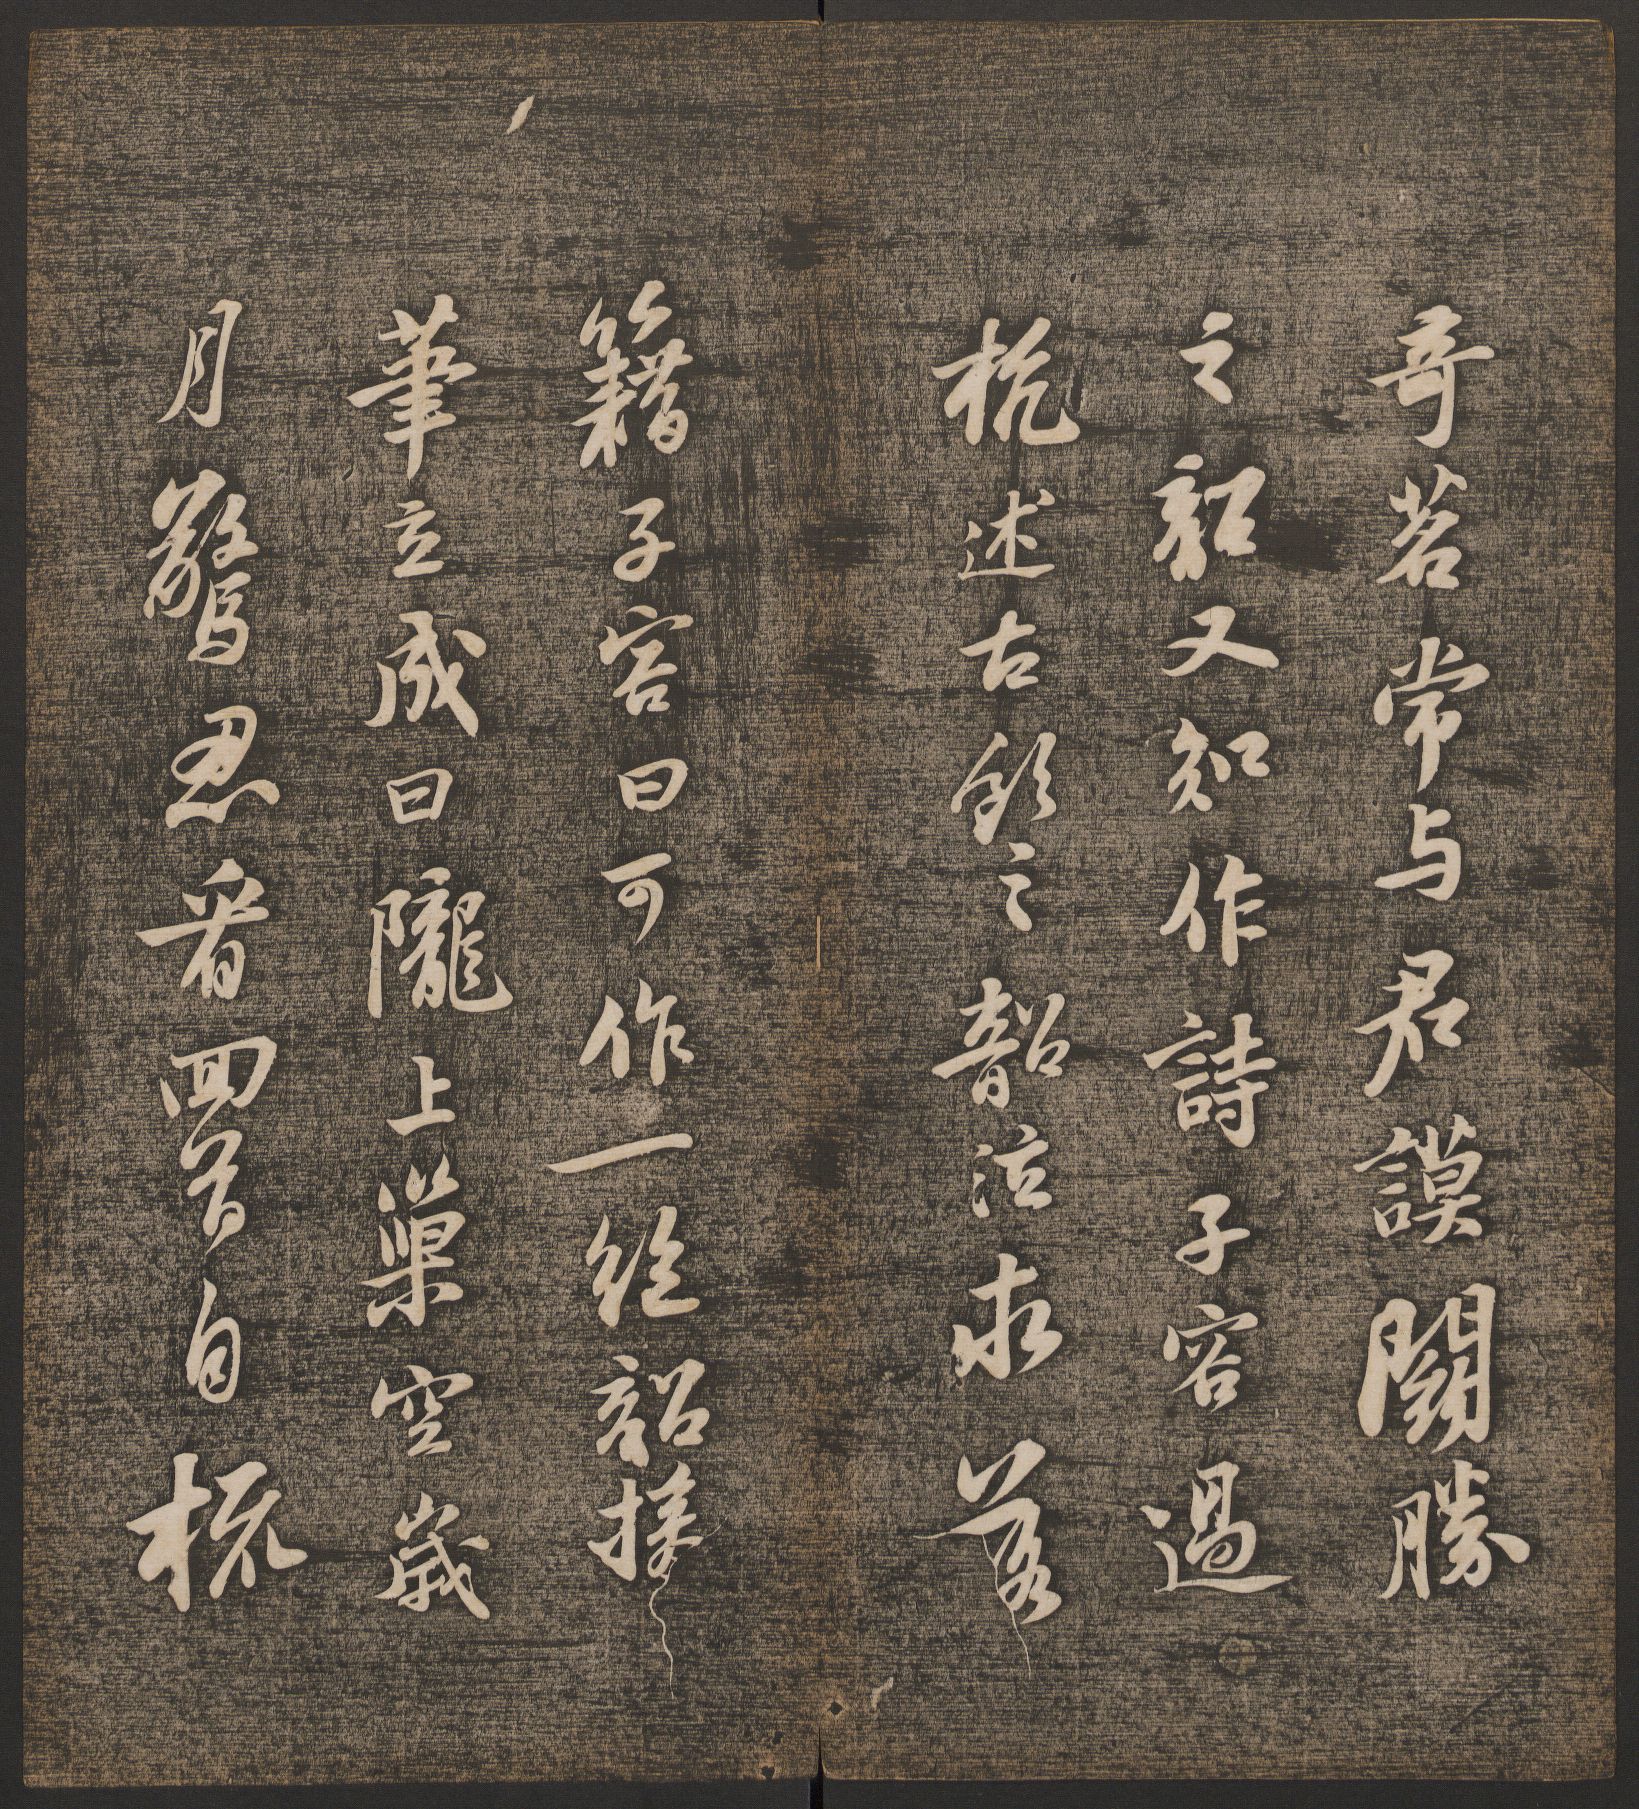 奇茗常与君謨鬭勝
之韶又知作詩子容過
杭述古飲之韶泣求落
籍子容曰可作一絶韶援
筆立成曰隴上巢空歲
月驚忍看回首自梳